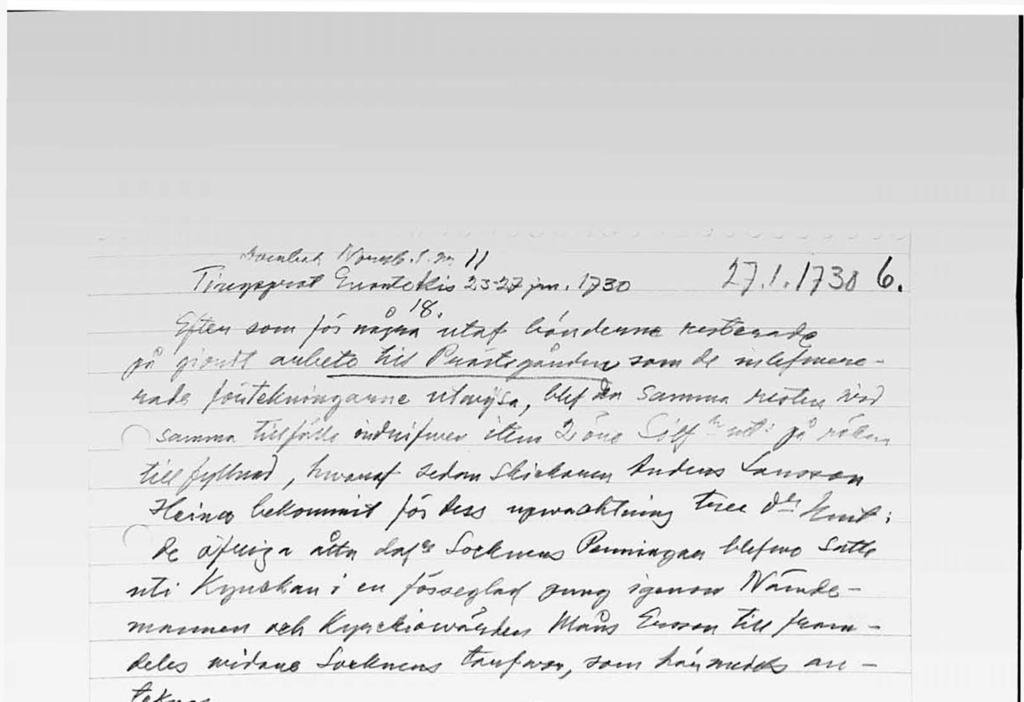 Norrb. l. nr 11
Tingsprot Enontekis 23-27 jan. 1730 27.1.1730 6.
18.
Efter som för några utaf bönderne resterade
på giordt arbete til Prästegården som de inlefwere-
rade förtekningarne utwijsa, blef den samma resten wid
samma tillfälle indrifwen item 2 öre Silf mt: på röken
till fyllnad, hwaraf sedan skickaren Anders Larsson
Heino bekommit för dess upwachtning tree dlr Kmt:
de öfriga åtta dalr Socknens Penningar blefwo satte
uti Kyrckan i en förseglad pung igenom Nämde-
mannen och Kyrckiowärden Måns Ersson till fram-
deles widare Socknens tarfwor, som härmedels an-
teknas